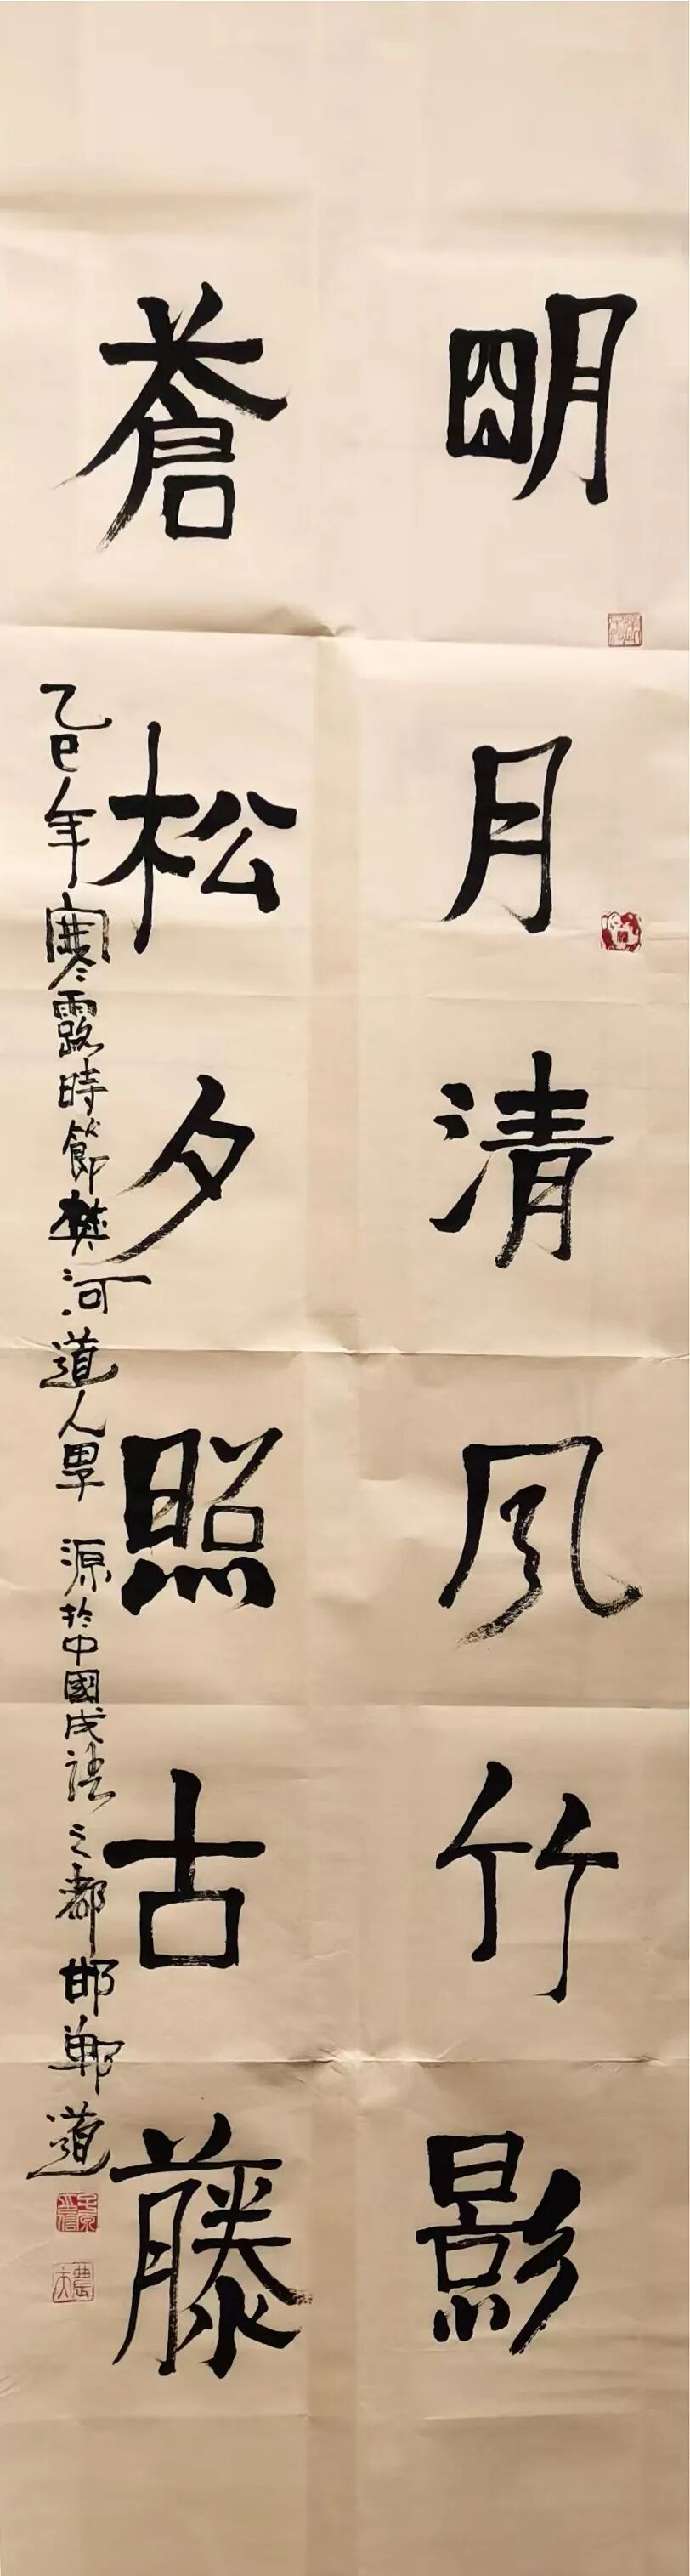 明月清风竹影
蒼松夕照古藤
乙巳年寒露時節樊河道人覃 源於中國成語之都邯鄲道